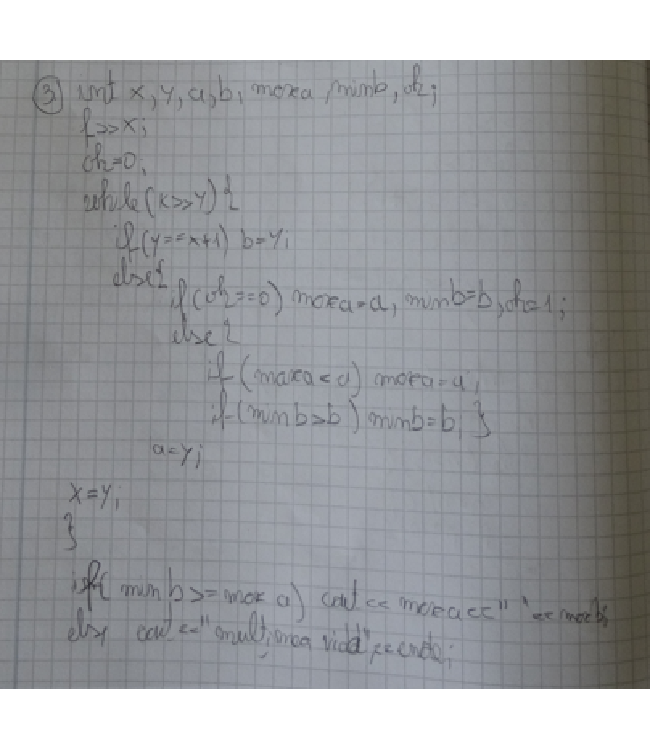 ③ int x, y, a, b, maxa, minb, ok;
f>>x;
ok=0;
while(x>>y){
if(y==x+1) b=y;
else{
if(ok==0) maxa=a, minb=b, ok=1;
else{
if(maxa<a) maxa=a;
if(minb>b) minb=b; }
a=y;
x=y;
}
if(minb>=maxa) cout<<maxa<<" "<<
else cout<<"mulțimea vidă"<<endl;